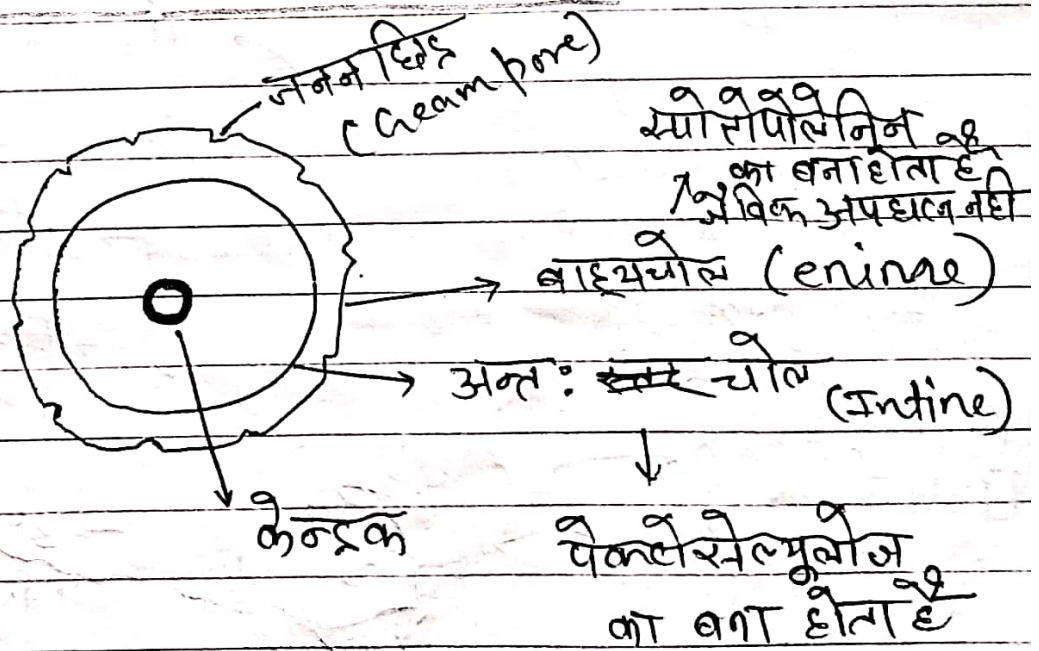 जनन छिद्र
(Geam pore)
स्पोरोपोलेनिन
का बना होता है
जैविक अपघटन नही
बाह्यचोल (eninne)
अन्त: चोल
(Intine)
केन्द्रक
पेक्टोसेल्युलोज
का बना होता है